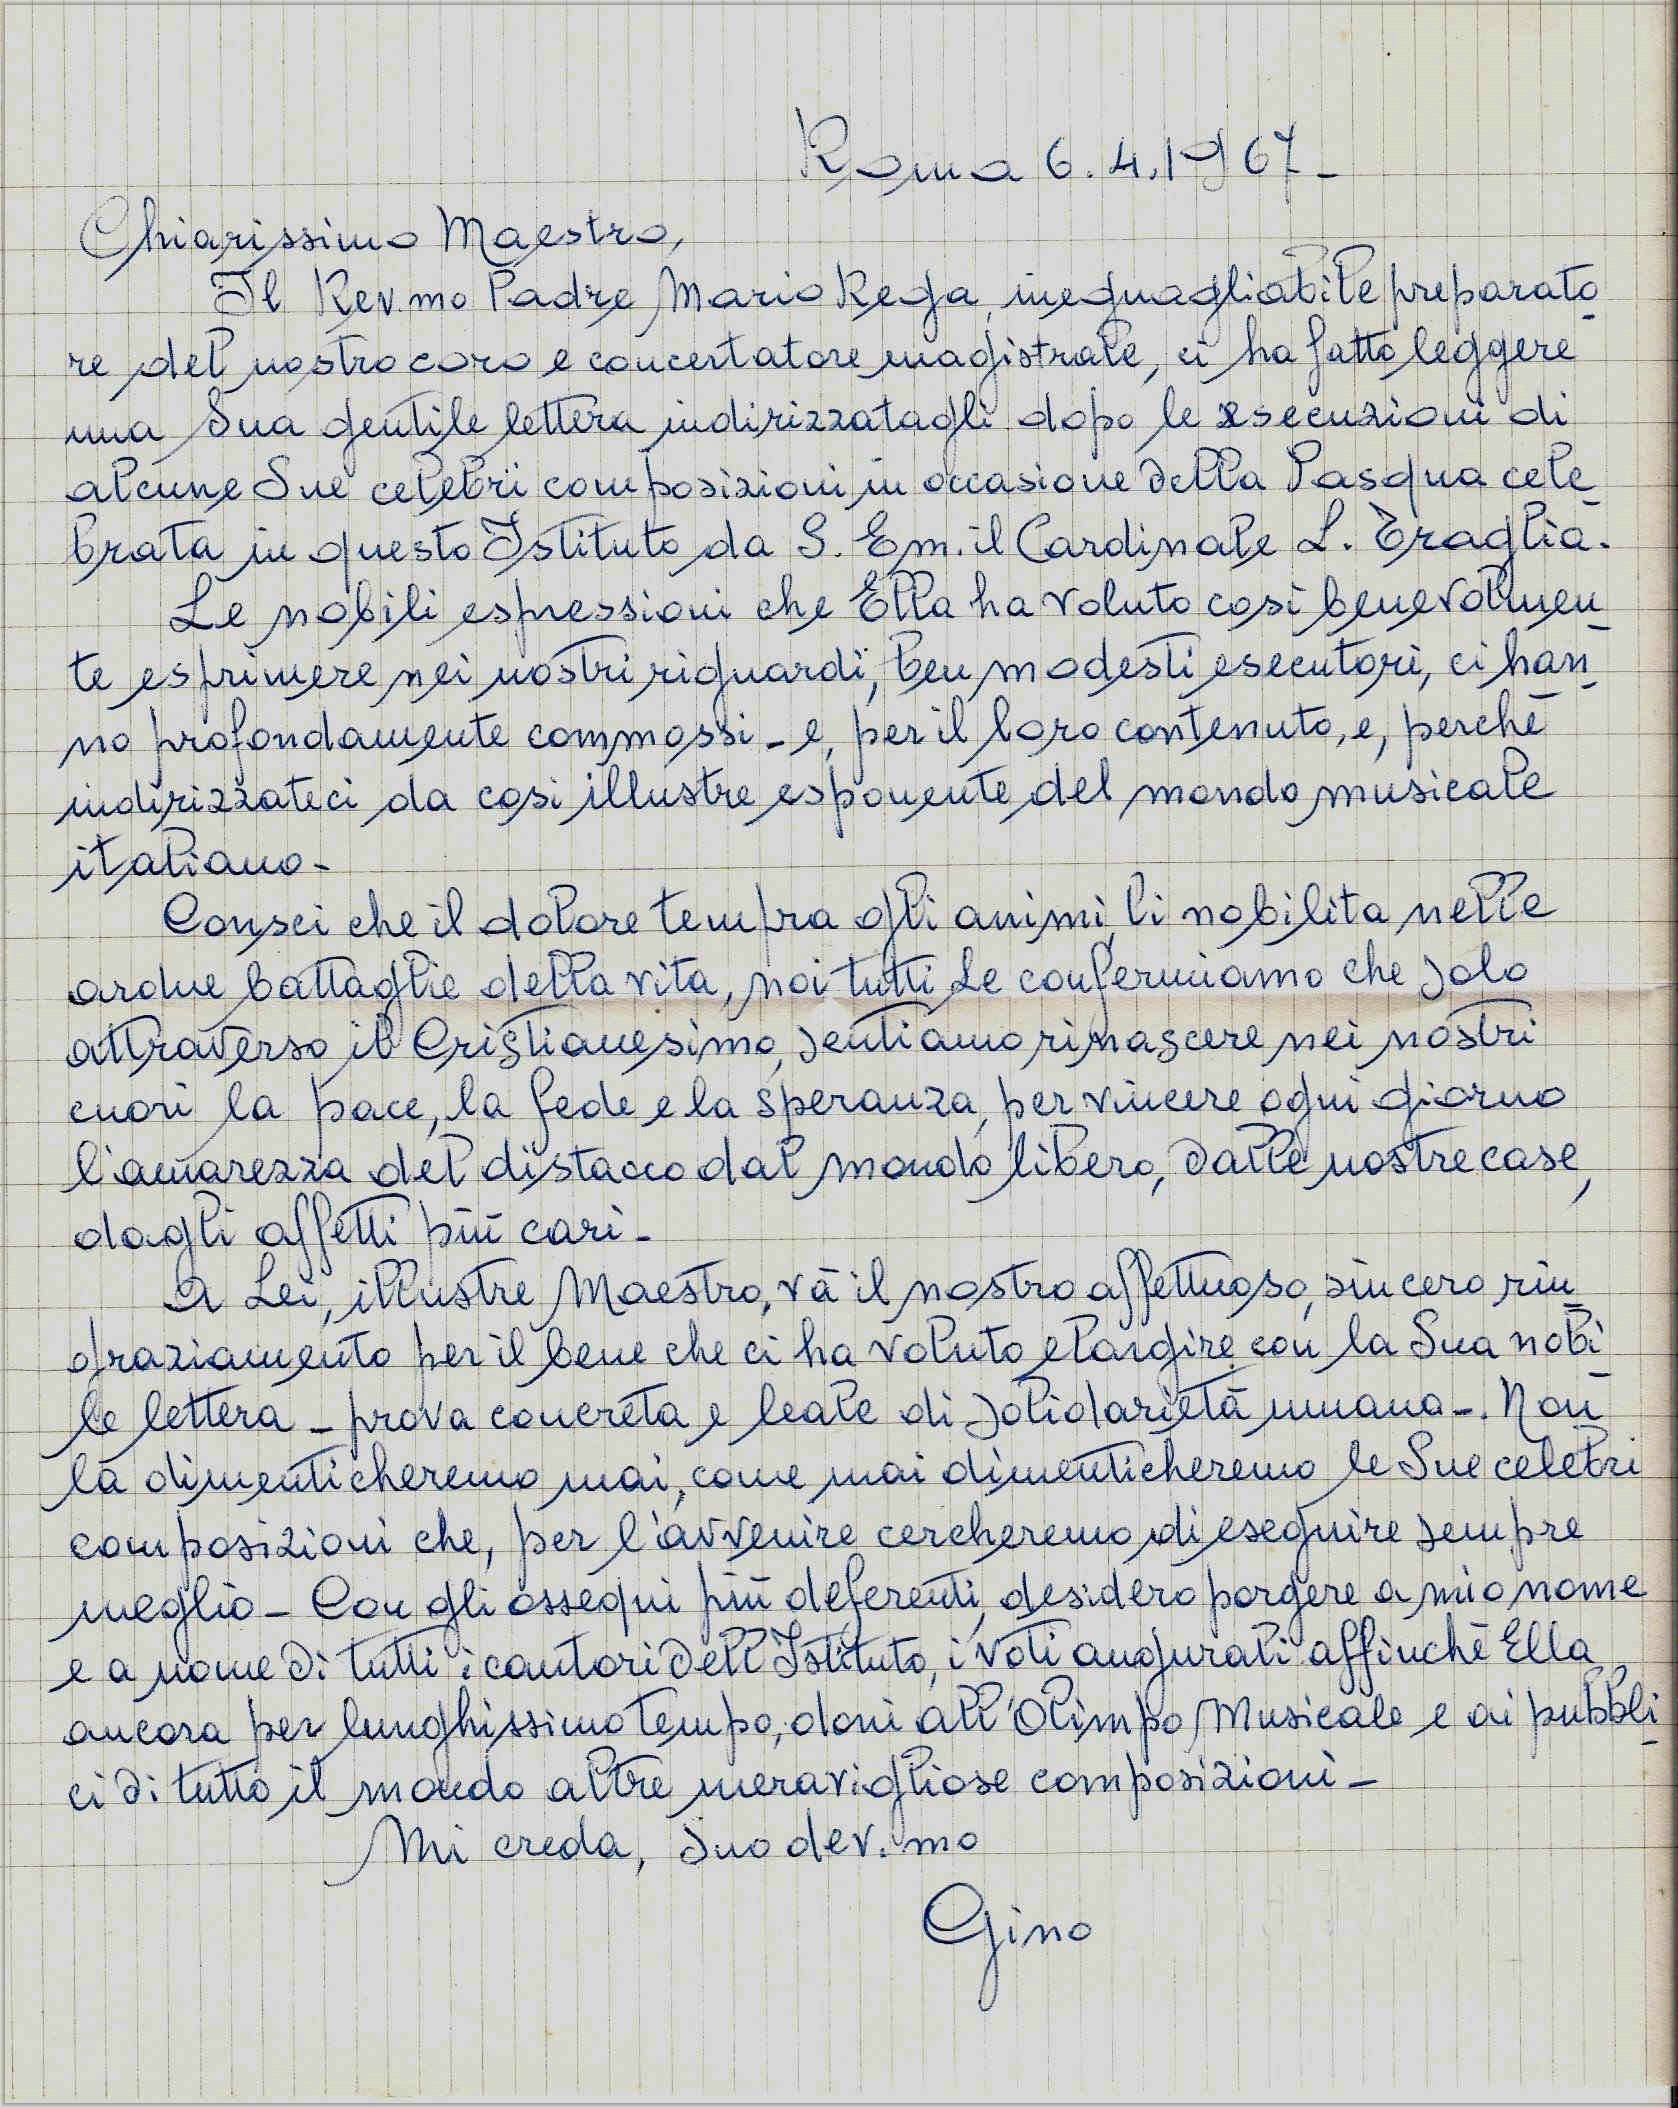 Roma 6.4.1967_
Chiarissimo Maestro,
Il Rev.mo Padre Mario Rega, ineguagliabile preparato
re del nostro coro e concertatore magistrale, ci ha fatto leggere
una Sua gentile lettera indirizzatagli dopo le esecuzioni di
alcune Sue celebri composizioni in occasione della Pasqua cele
brata in questo Istituto da S. Em. il Cardinale L. Traglia.
Le nobili espressioni che Ella ha voluto così benevolmen
te esprimere nei nostri riguardi, ben modesti esecutori, ci han
no profondamente commossi _ e, per il loro contenuto, e, perchè
indirizzateci da così illustre esponente del mondo musicale
italiano_
Consci che il dolore tempra gli animi, li nobilita nelle
ardue battaglie della vita, noi tutti Le confermiamo che solo
attraverso il Cristianesimo, sentiamo rinascere nei nostri
cuori la pace, la fede e la speranza, per vincere ogni giorno
l'amarezza del distacco dal mondo libero, dalle nostre case,
dagli affetti più cari_
A Lei, illustre Maestro, và il nostro affettuoso, sincero rin
graziamento per il bene che ci ha voluto elargire con la Sua nobi
le lettera _ prova concreta e leale di solidarietà umana_. Non
la dimenticheremo mai, come mai dimenticheremo le Sue celebri
composizioni che, per l'avvenire cercheremo di eseguire sempre
meglio_ Con gli ossequi più deferenti, desidero porgere a mio nome
e a nome di tutti i cantori dell'Istituto, i voti augurali affinchè Ella
ancora per lunghissimo tempo, doni all'Olimpo Musicale e ai pubbli
ci di tutto il mondo altre meravigliose composizioni_
Mi creda, suo dev.mo
Gino